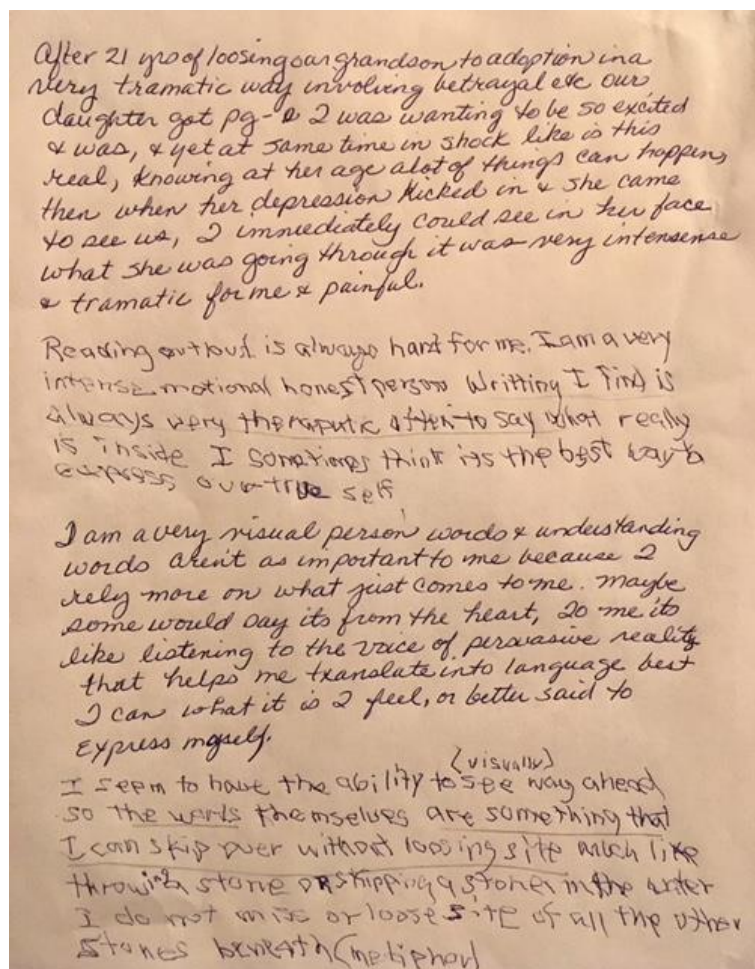 After 21 yrs of loosing our grandson to adoption in a
very tramatic way involving betrayal etc our
daughter got pg- I was wanting to be so excited
& was, & yet at same time in shock like is this
real, knowing at her age alot of things can happen,
then when her depression kicked in & she came
to see us, I immediately could see in her face
what she was going through it was very intensense
& tramatic for me & painful.
Reading outloud is always hard for me. I am a very
intense motional honest person Writting I find is
always very theraputic often to say what really
is inside I sometimes think its the best way to
express our true self
I am a very visual person words & understanding
words arent as important to me because I
rely more on what just comes to me. Maybe
some would say its from the heart, To me its
like listening to the voice of persuasive reality
that helps me translate into language best
I can what it is I feel, or better said to
express myself.
(visually)
I seem to have the ability to see way ahead
so the words themselves are something that
I can skip over without loosing site much like
throwing stone or skipping a stone in the water
I do not miss or loose site of all the other
stones beneath (metiphor)